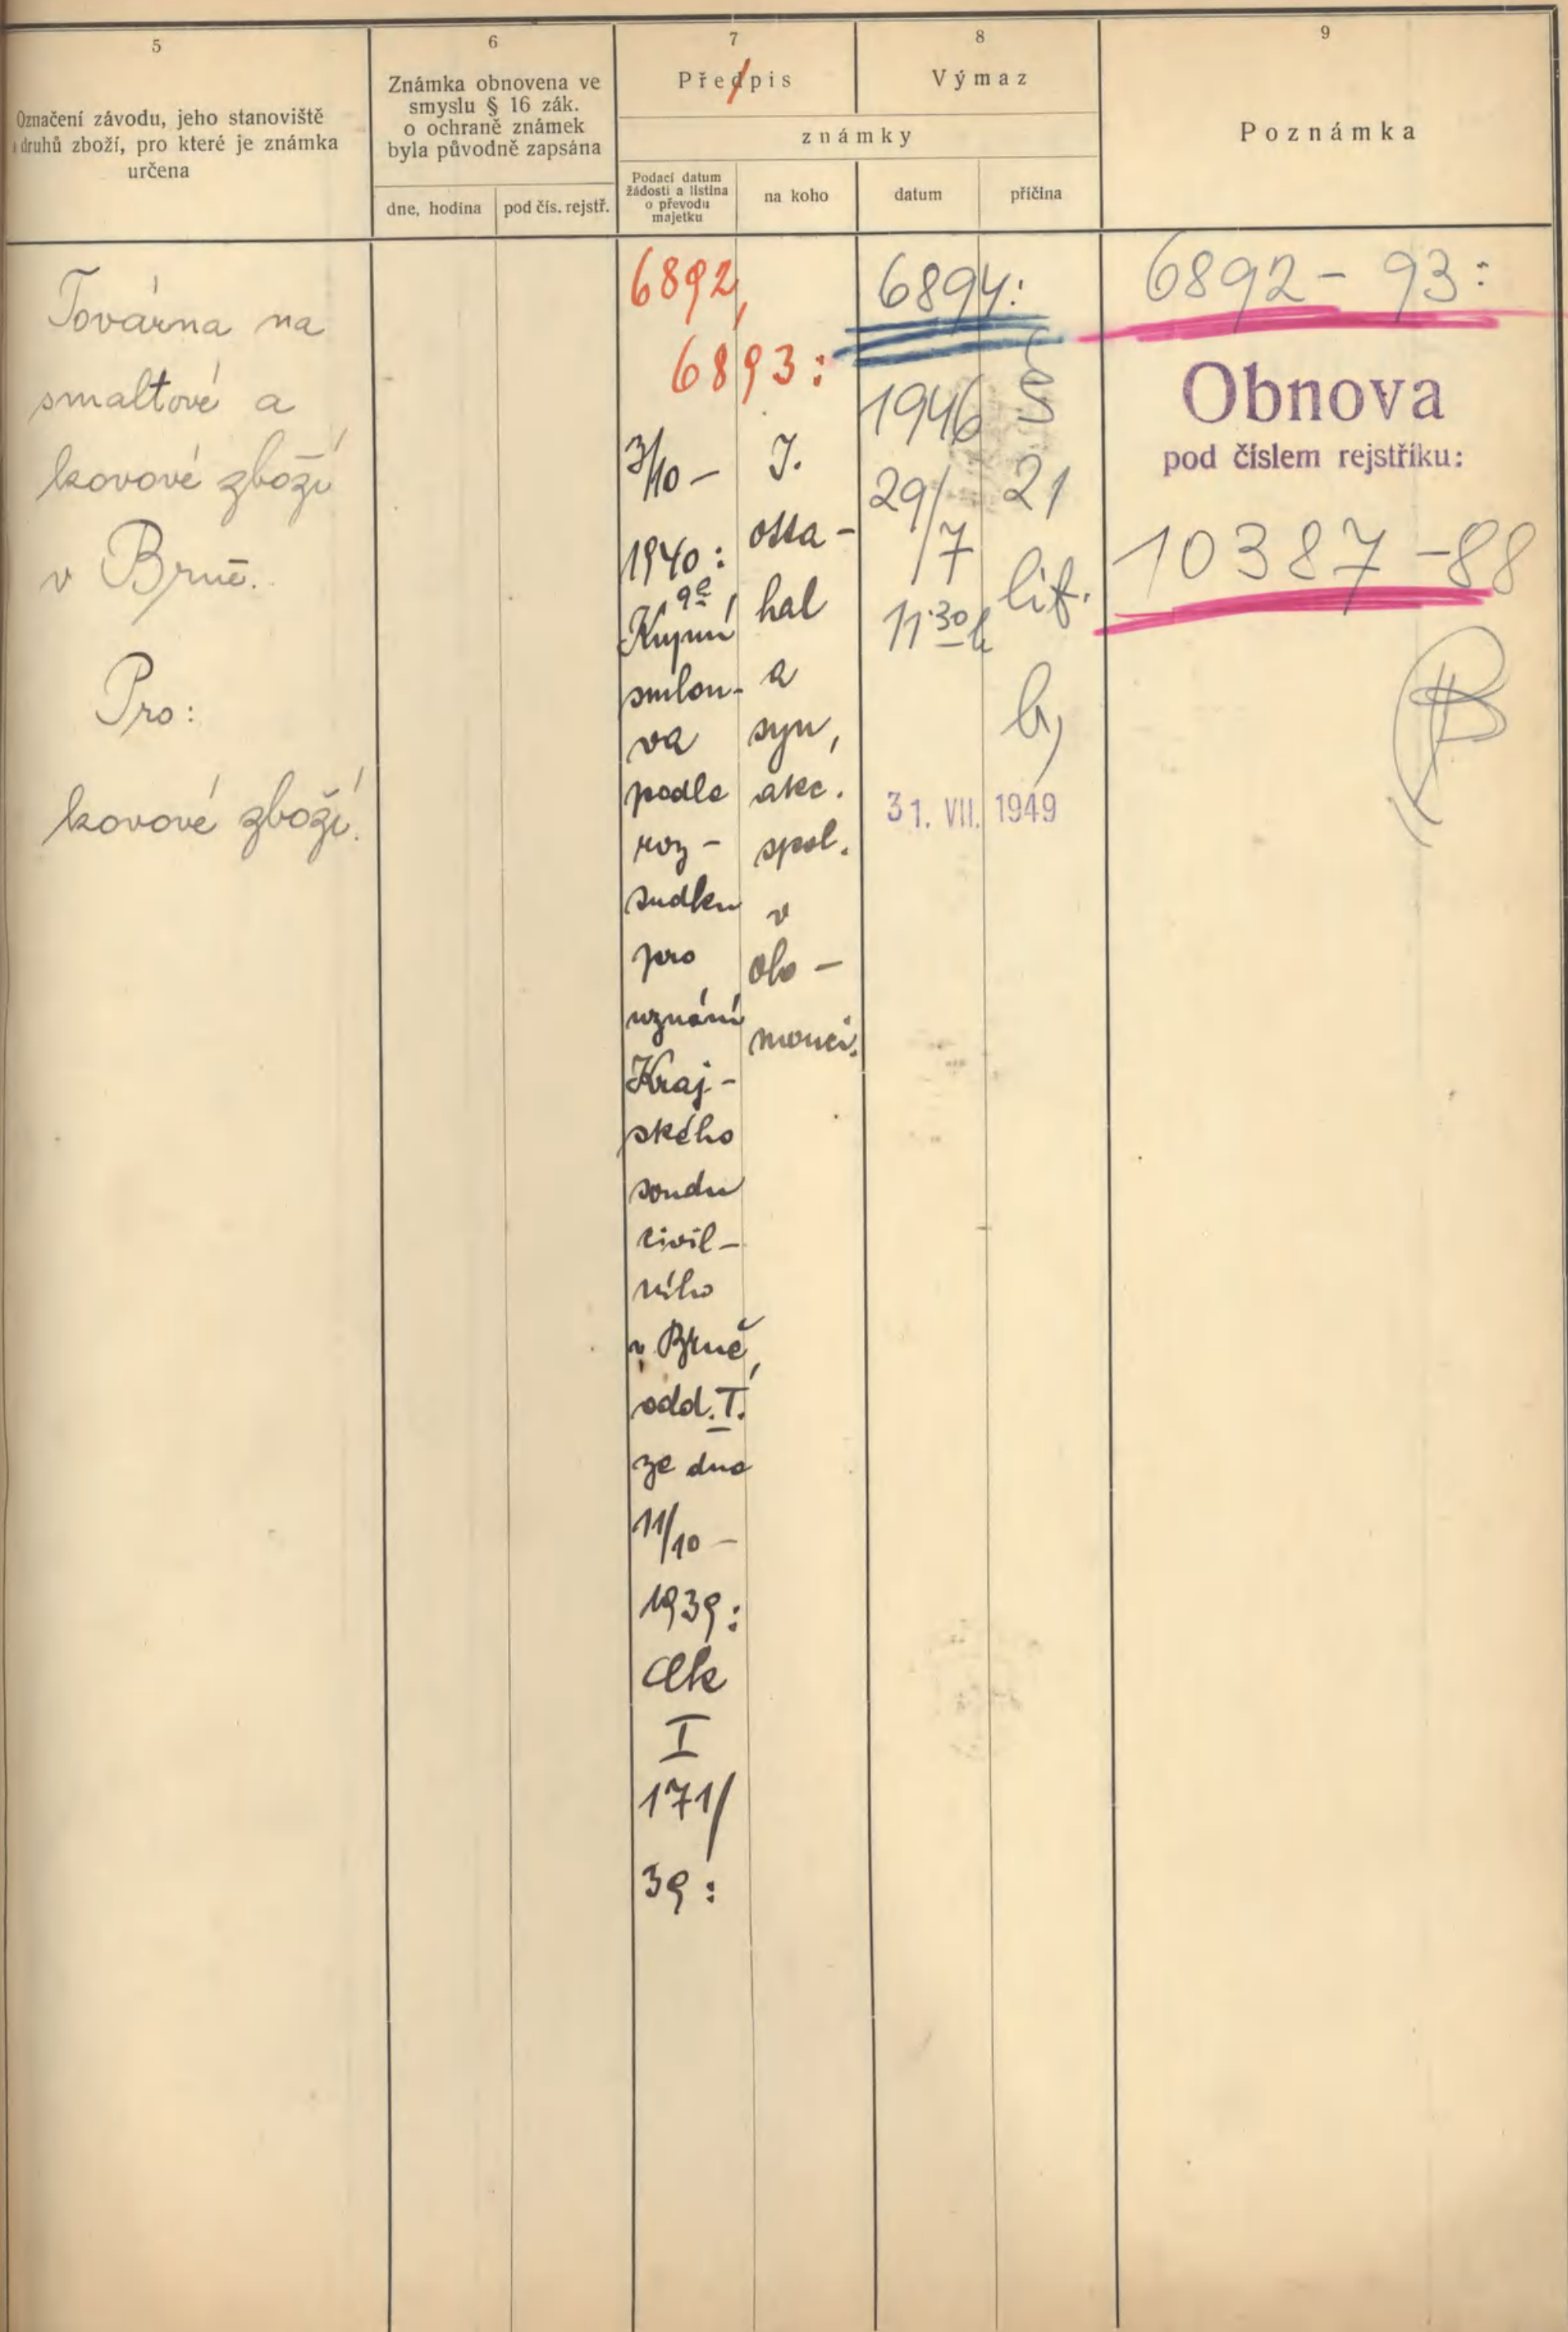 5
Označení závodu, jeho stanoviště
a druhů zboží, pro které je známka
určena
6
Známka obnovena ve
smyslu § 16 zák.
o ochraně známek
byla původně zapsána
dne, hodina
pod čís. rejstř.
7
Předpis
8
Výmaz
známky
Podací datum
žádosti a listina
o převodu
majetku
na koho
datum
příčina
9
Poznámka
Továrna na
smaltové a
kovové zboží
v Brně.
Pro:
kovové zboží.
6892,
6893:
3/10 –
1940:
9e
Kupní
smlou-
va
podle
roz-
sudku
pro
uznání
Kraj-
ského
soudu
civil-
ního
v Brně,
odd. I.
ze dne
11/10 –
1939:
Ck
I
171/
39:
J.
otta-
hal
a
syn,
akc.
spol.
v
Olo-
mouci.
6894:
1946
29/
/7
11·30 h
§
21
lit.
b,
31. VII. 1949
6892 – 93:
Obnova
pod číslem rejstříku:
10387 – 88